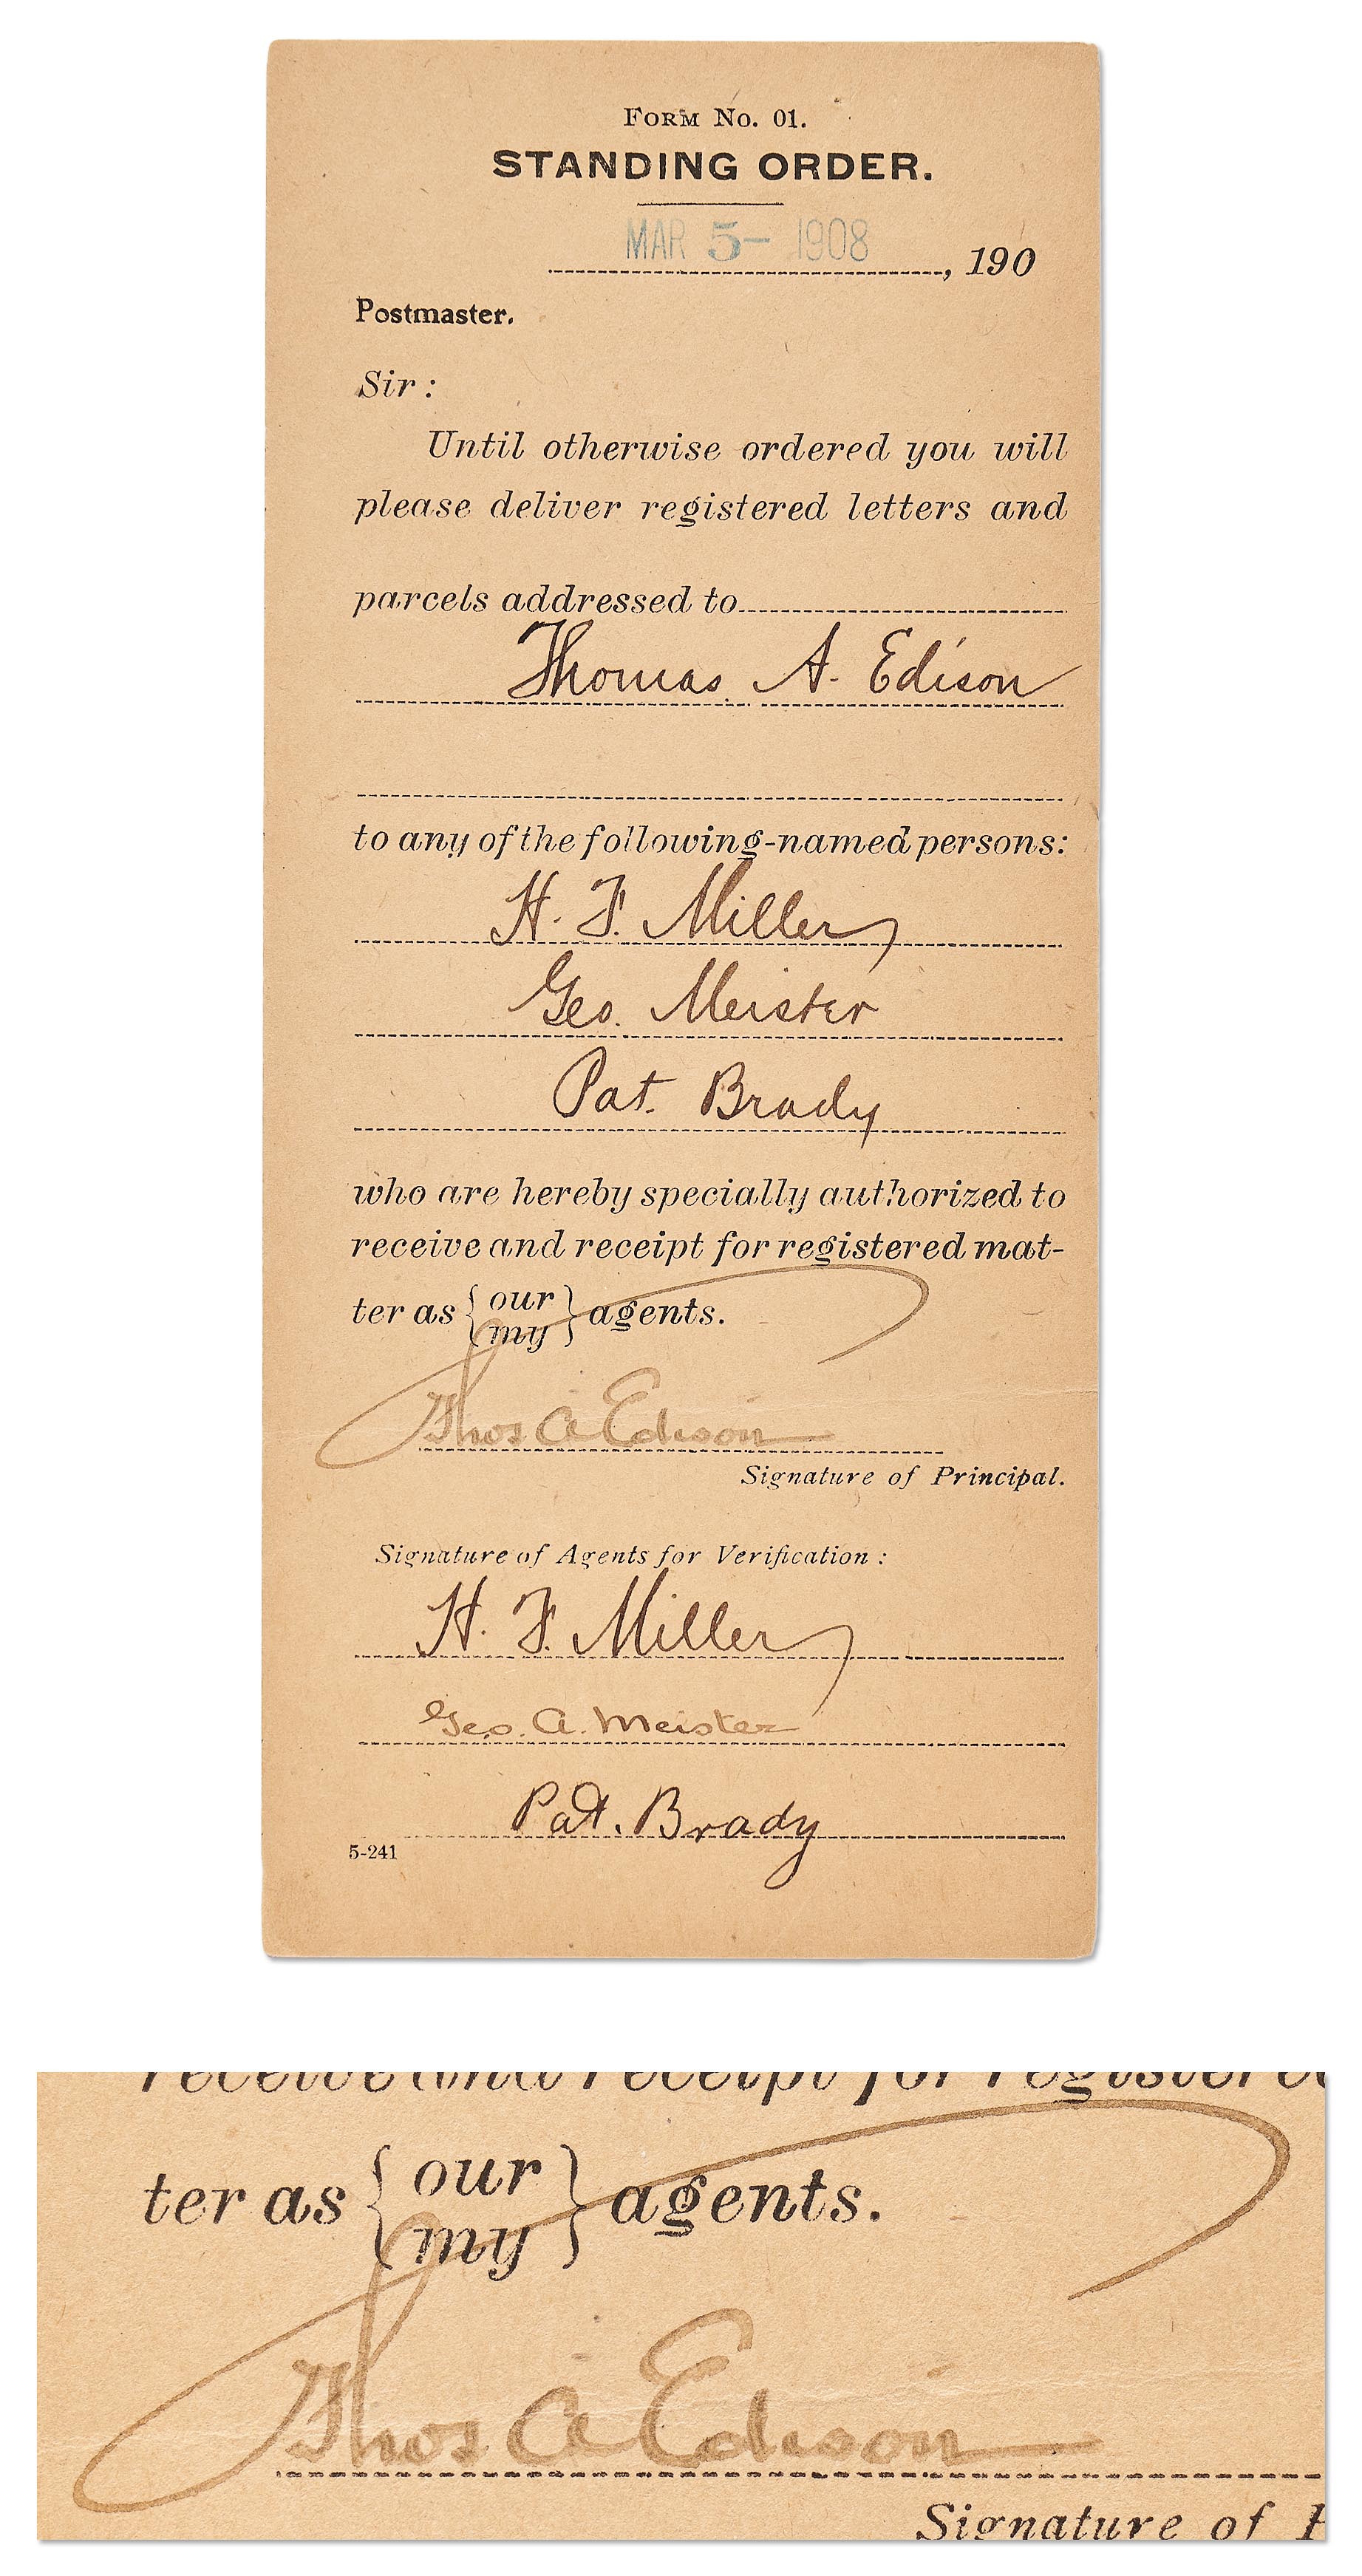 FORM No. 01.
STANDING ORDER.
MAR 5- 1908 , 190
Postmaster.
Sir:
Until otherwise ordered you will
please deliver registered letters and
parcels addressed to
Thomas A. Edison
to any of the following-named persons:
H. F. Miller
Geo. Meister
Pat. Brady
who are hereby specially authorized to
receive and receipt for registered mat-
ter as { our my } agents.
Thos A Edison
Signature of Principal.
Signature of Agents for Verification:
H. F. Miller
Geo. A. Meister
Pat. Brady
5-241
receive and receipt for registered
ter as { our my } agents.
Thos A Edison
Signature of P